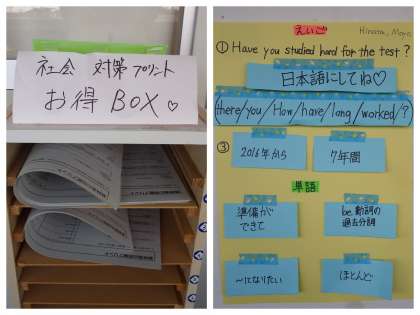 社会 対策プリント
お得 BOX♡
えいご
Hinata, Moe
① Have you studied hard for the test?
日本語にしてね♡
(there/you/How/have/long/worked/?
③
2016年から
7年間
単語
準備が
できて
be動詞の
過去分詞
～になりたい
ほとんど